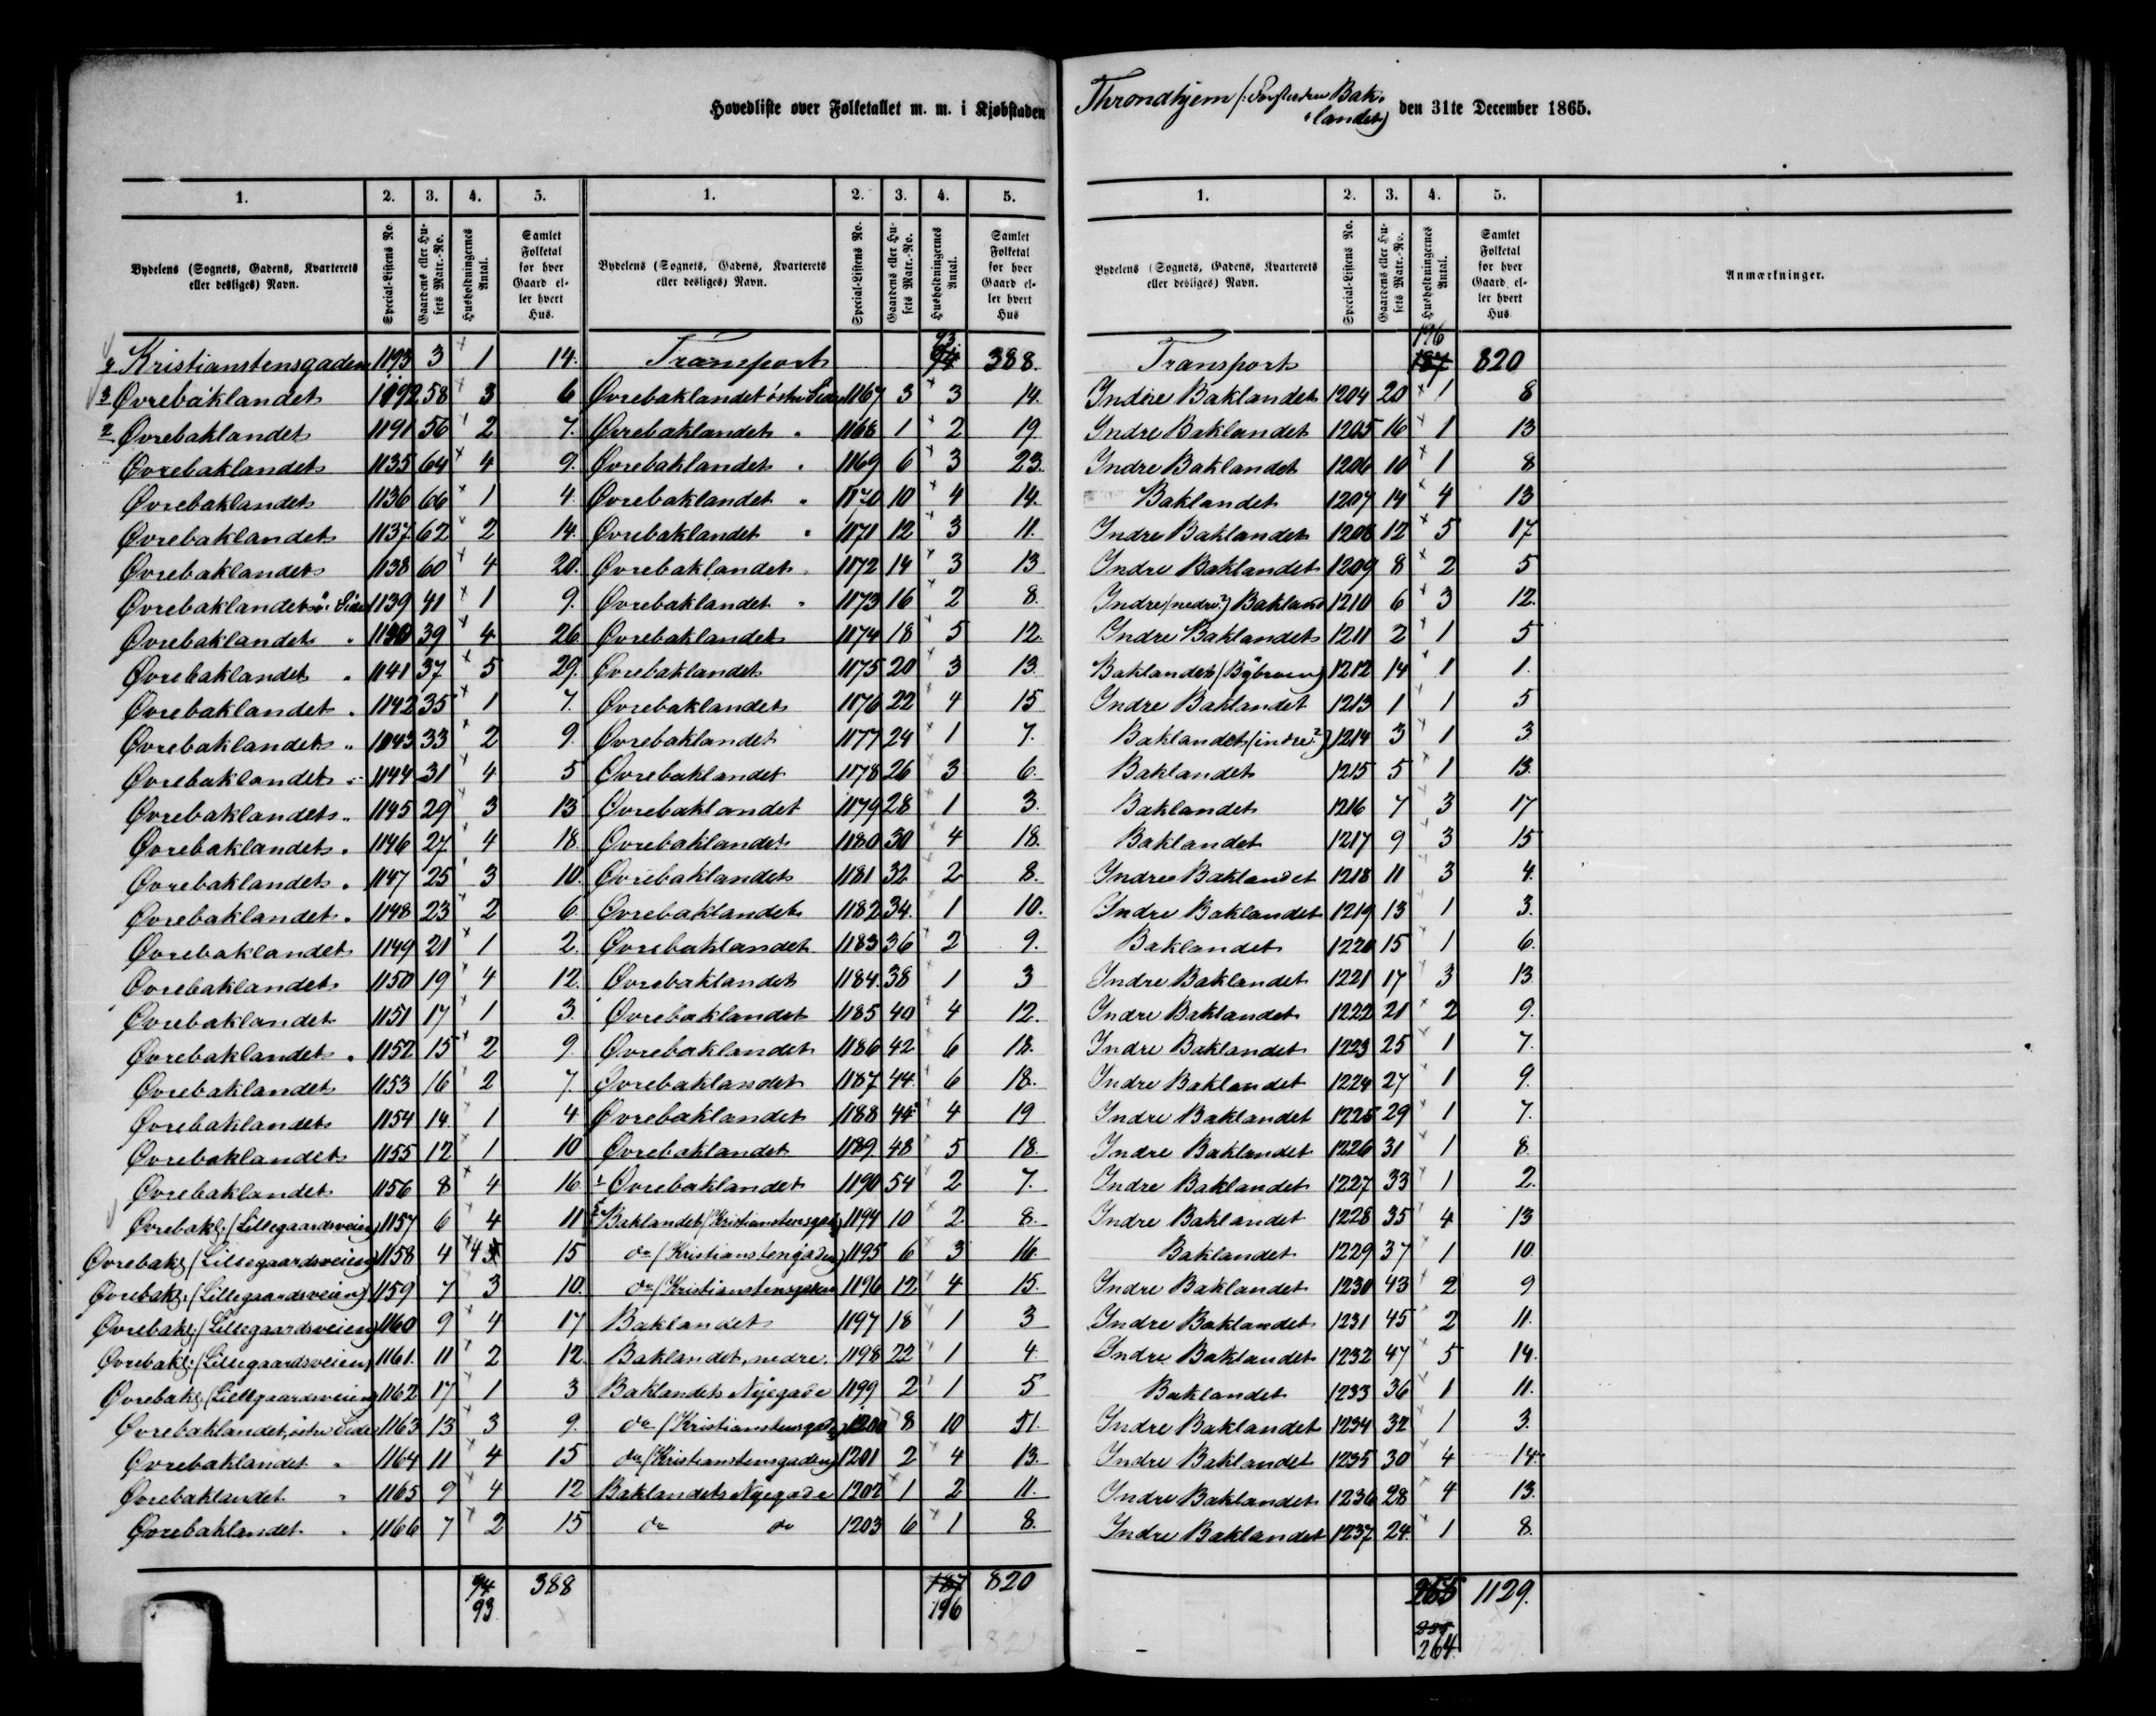 Hovedliste over Folketallet m. m. i Kjøbstaden Throndhjem (: Forstaden Bak-
landet) den 31te December 1865.
1. 2. 3. 4. 5.
Bydelens (Sognets, Gadens, Kvarterets eller desliges) Navn. Special-Listens No. Gaardens eller Husets Matr.-No. Husholdningernes Antal. Samlet Folketal for hver Gaard eller hvert Hus.
Kristianstensgaden 1193 3 1 14.
3 Øvrebaklandet 1192 58 3 6
2 Øvrebaklandet 1191 56 2 7.
Øvrebaklandet 1135 64 4 9.
Øvrebaklandet 1136 66 1 4
Øvrebaklandet 1137 62 2 14.
Øvrebaklandet 1138 60 4 20.
Øvrebaklandet ö: Side 1139 41 1 9.
Øvrebaklandet " 1140 39 4 26
Øvrebaklandet " 1141 37 5 29.
Øvrebaklandet " 1142 35 1 7.
Øvrebaklandet " 1143 33 2 9.
Øvrebaklandet " 1144 31 4 5
Øvrebaklandet " 1145 29 3 13
Øvrebaklandet " 1146 27 4 18
Øvrebaklandet " 1147 25 3 10.
Øvrebaklandet " 1148 23 2 6
Øvrebaklandet 1149 21 1 2.
Øvrebaklandet 1150 19 4 12.
Øvrebaklandet 1151 17 1 3.
Øvrebaklandet " 1152 15 2 9.
Øvrebaklandet 1153 16 2 7.
Øvrebaklandet 1154 14. 1 4
Øvrebaklandet 1155 12 1 10
Øvrebaklandet 1156 8 4 16
Øvrebakl: (Lillegaardsveien) 1157 6 4 11
Øvrebakl: (Lillegaardsveien) 1158 4 4 15
Øvrebakl: (Lillegaardsveien) 1159 7 3 10.
Øvrebakl: (Lillegaardsveien) 1160 9 4 17
Øvrebakl: (Lillegaardsveien) 1161. 11 2 12
Øvrebakl: (Lillegaardsveien) 1162 17 1 3
Øvrebaklandet, östre Side 1163 13 3 9.
Øvrebaklandet " 1164 11 4 15
Øvrebaklandet " 1165 9 4 12
Øvrebaklandet " 1166 7 2 15
94 388
93
1. 2. 3. 4. 5.
Bydelens (Sognets, Gadens, Kvarterets eller desliges) Navn. Special-Listens No. Gaardens eller Husets Matr.-No. Husholdningernes Antal. Samlet Folketal for hver Gaard eller hvert Hus
93.
Transport 94 388.
Øvrebaklandet östre Side 1167 3 3 14.
Øvrebaklandet " 1168 1 2 19
Øvrebaklandet " 1169 6 3 23.
Øvrebaklandet " 1170 10 4 14.
Øvrebaklandet " 1171 12 3 11.
Øvrebaklandet " 1172 14 3 13
Øvrebaklandet " 1173 16 2 8.
Øvrebaklandet 1174 18 5 12.
Øvrebaklandet 1175 20 3 13
Øvrebaklandet 1176 22 4 15
Øvrebaklandet 1177 24 1 7.
Øvrebaklandet 1178 26 3 6.
Øvrebaklandet 1179 28 1 3.
Øvrebaklandet 1180 30 4 18.
Øvrebaklandet 1181 32 2 8.
Øvrebaklandet 1182 34. 1 10.
Øvrebaklandet 1183 36 2 9.
Øvrebaklandet 1184. 38 1 3
Øvrebaklandet 1185 40 4 12.
Øvrebaklandet 1186 42 6 18.
Øvrebaklandet 1187 44. 6 18.
Øvrebaklandet 1188 4 19
Øvrebaklandet 1189. 48 5 18.
Øvrebaklandet 1190 54 2 7.
Baklandet (Kristianstensgad) 1194 10 2 8.
do (Kristianstengaden) 1195 6 3 16
do (Kristianstensgaden 1196 12 4 15.
Baklandet 1197 18 1 3
Baklandet, nedre. 1198 22 1 4
Baklandets Nyegade 1199 2 1 5
do (Kristianstensgaden) 1200 8 10 51.
do (Kristianstensgaden) 1201 2 4 13.
Baklandets Nyegade 1202 1 2 11.
do do 1203 6 1 8.
187 820
196
1. 2. 3. 4. 5.
Bydelens (Sognets, Gadens, Kvarterets eller desliges) Navn. Special-Listens No. Gaardens eller Husets Matr.-No. Husholdningernes Antal. Samlet Folketal for hver Gaard eller hvert Hus. Anmærkninger.
196
Transport 187 820
Indre Baklandet 1204 20 1 8
Indre Baklandet 1205 16 1 13
Indre Baklandet 1206 10 1 8
Baklandet 1207 14 4 13
Indre Baklandet 1208 12 5 17
Indre Baklandet 1209 8 2 5
Indre (nedre?) Bakland 1210 6 3 12.
Indre Baklandet 1211 2 1 5
Baklandet (Bÿbroen) 1212 14 1 1.
Indre Baklandet 1213 1 1 5
Baklandet (indre?) 1214 3 1 3
Baklandet 1215 5 1 13.
Baklandet 1216 7 3 17
Baklandet 1217 9 3 15
Indre Baklandet 1218 11 3 4.
Indre Baklandet 1219 13 1 3.
Baklandet 1220 15 1 6.
Indre Baklandet 1221 17 3 13
Indre Baklandet 1222 21 2 9.
Indre Baklandet 1223 25 1 7.
Indre Baklandet 1224 27 1 9.
Indre Baklandet 1225 29 1 7.
Indre Baklandet 1226 31 1 8
Indre Baklandet 1227 33 1 2.
Indre Baklandet 1228 35 4 13
Baklandet 1229 37 1 10
Indre Baklandet 1230 43 2 9
Indre Baklandet 1231 45 2 11.
Indre Baklandet 1232 47 5 14.
Baklandet 1233 36 1 11.
Indre Baklandet 1234 32 1 3.
Indre Baklandet 1235 30 4 14.
Indre Baklandet 1236 28 4 13.
Indre Baklandet 1237 24. 1 8.
1129.
264.